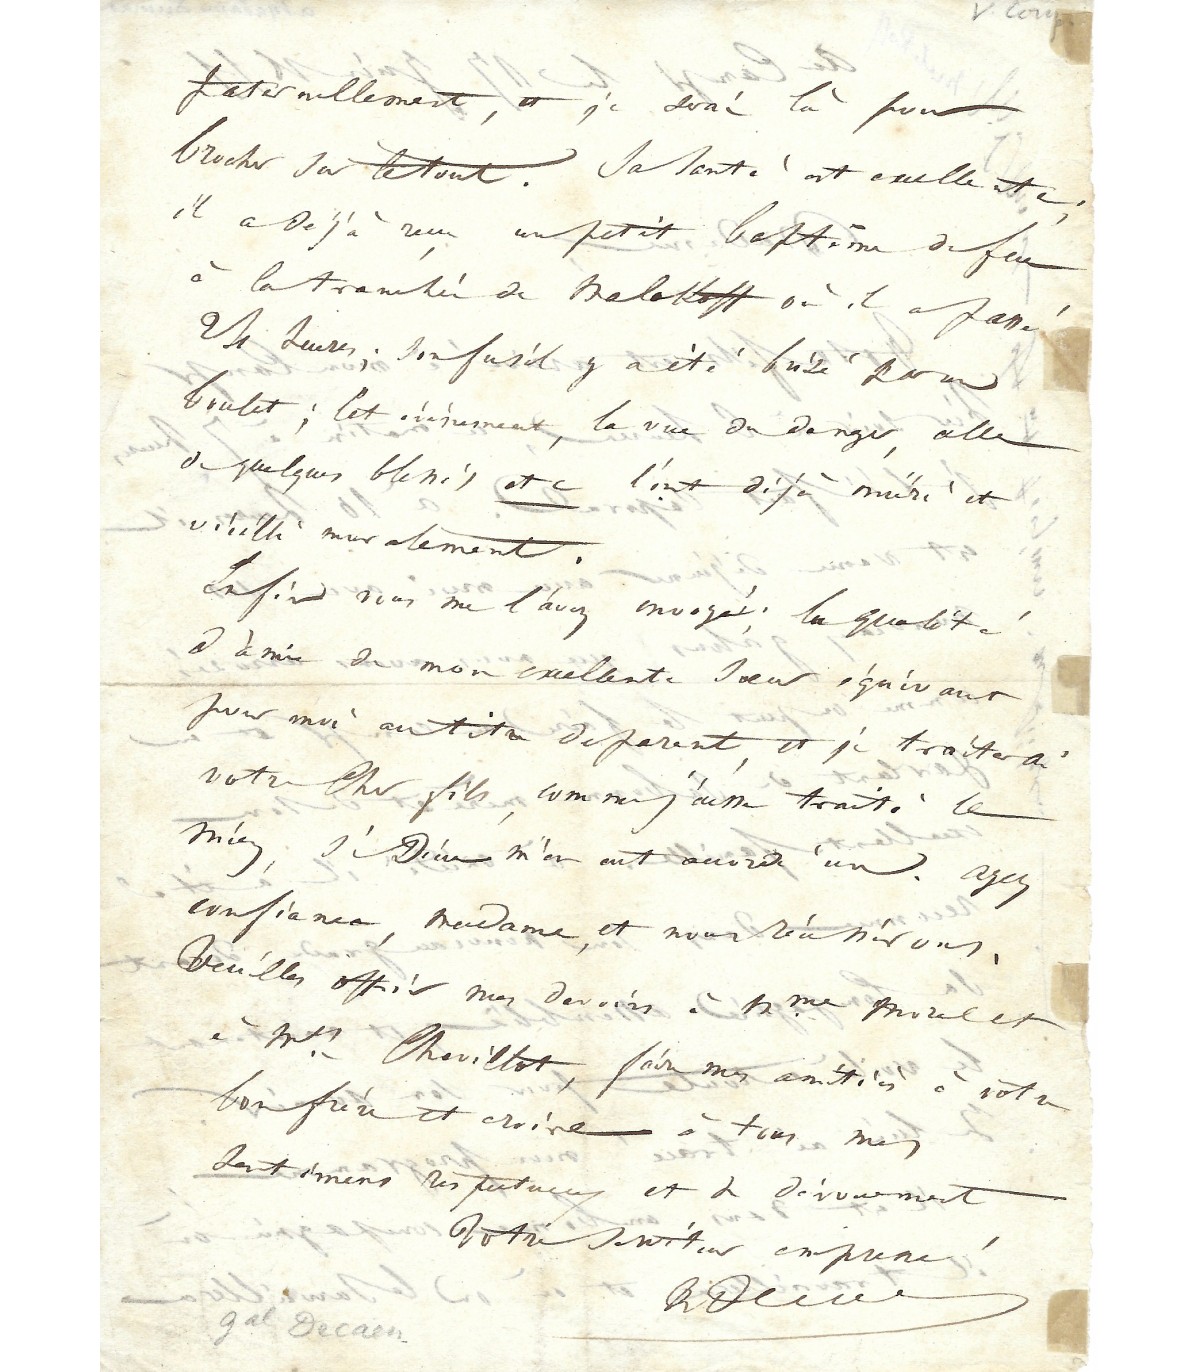 V. Corps
paternellement, et je serai là pour
brocher sur le tout. Sa santé est excellente;
il a déjà reçu un petit baptême de feu
à la tranchée de Malakoff où il a passé
24 heures; son fusil y a été brisé par un
boulet; cet événement, la vue du danger, celle
de quelques blessés etc l'ont déjà mûri et
vieilli moralement.
Enfin vous me l'avez envoyé; la qualité
d'amie de mon excellente soeur équivaut
pour moi au titre de parent, et je traiterai
votre cher fils, comme j'eusse traité le
mien, si Dieu m'en eut accordé un. ayez
confiance, madame, et nous réussirons.
Veuillez offrir mes devoirs à Mme Morel et
à Mr Chevillot, faire mes amitiés à votre
bon frère et croire à tous mes
sentimens respectueux et de dévouement
Votre serviteur empressé
Decaen
gal Decaen